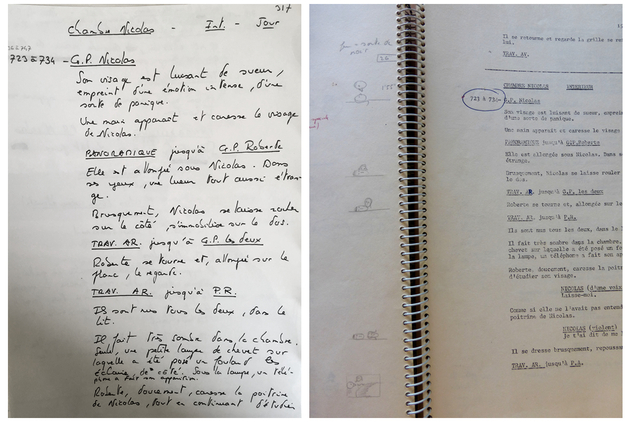 317
Chambre Nicolas - Int. - Jour
723 à 734 - G.P. Nicolas
Son visage est luisant de sueur,
empreint d'une émotion intense, d'une
sorte de panique.
Une main apparait et caresse le visage
de Nicolas.
PANORAMIQUE jusqu'à G.P. Roberte
Elle est allongée sous Nicolas. Dans
ses yeux, une lueur tout aussi étran-
ge.
Brusquement, Nicolas se laisse rouler
sur le côté, s'immobilise sur le dos.
TRAV. AR. jusqu'à G.P. les deux
Roberte se tourne et, allongée sur le
flanc, le regarde.
TRAV. AR. jusqu'à P.R.
Ils sont nus tous les deux, dans le
lit.
Il fait très sombre dans la chambre.
Seule, une petite lampe de chevet sur
laquelle a été posé un foulard, les
éclaire, de côté. Sous la lampe, un télé-
phone a fait son apparition.
Roberte, doucement, caresse la poitrine
de Nicolas, tout en continuant d'étudier
Il se retourne et regarde la grille se
lui.
TRAV. AR.
CHAMBRE NICOLAS INTERIEUR
723 à 734
G.P. Nicolas
Son visage est luisant de sueur,
d'une sorte de panique.
Une main apparait et caresse le visage
PANORAMIQUE jusqu'à G.P. Roberte
Elle est allongée sous Nicolas. Dans
étrange.
Brusquement, Nicolas se laisse rouler
le dos.
TRAV. AR. jusqu'à G.P. les deux
Roberte se tourne et, allongée sur le
TRAV. AR. jusqu'à
Ils sont nus tous les deux, dans le
Il fait très sombre dans la chambre.
chevet sur laquelle a été posé un
la lampe, un téléphone a fait son
Roberte, doucement, caresse la
d'étudier son visage.
NICOLAS (d'une voix
Laisse-moi.
Comme si elle ne l'avait pas entendu
poitrine de Nicolas.
NICOLAS (violent)
Je t'ai dit de me
Il se dresse brusquement,
TRAV. AR. jusqu'à